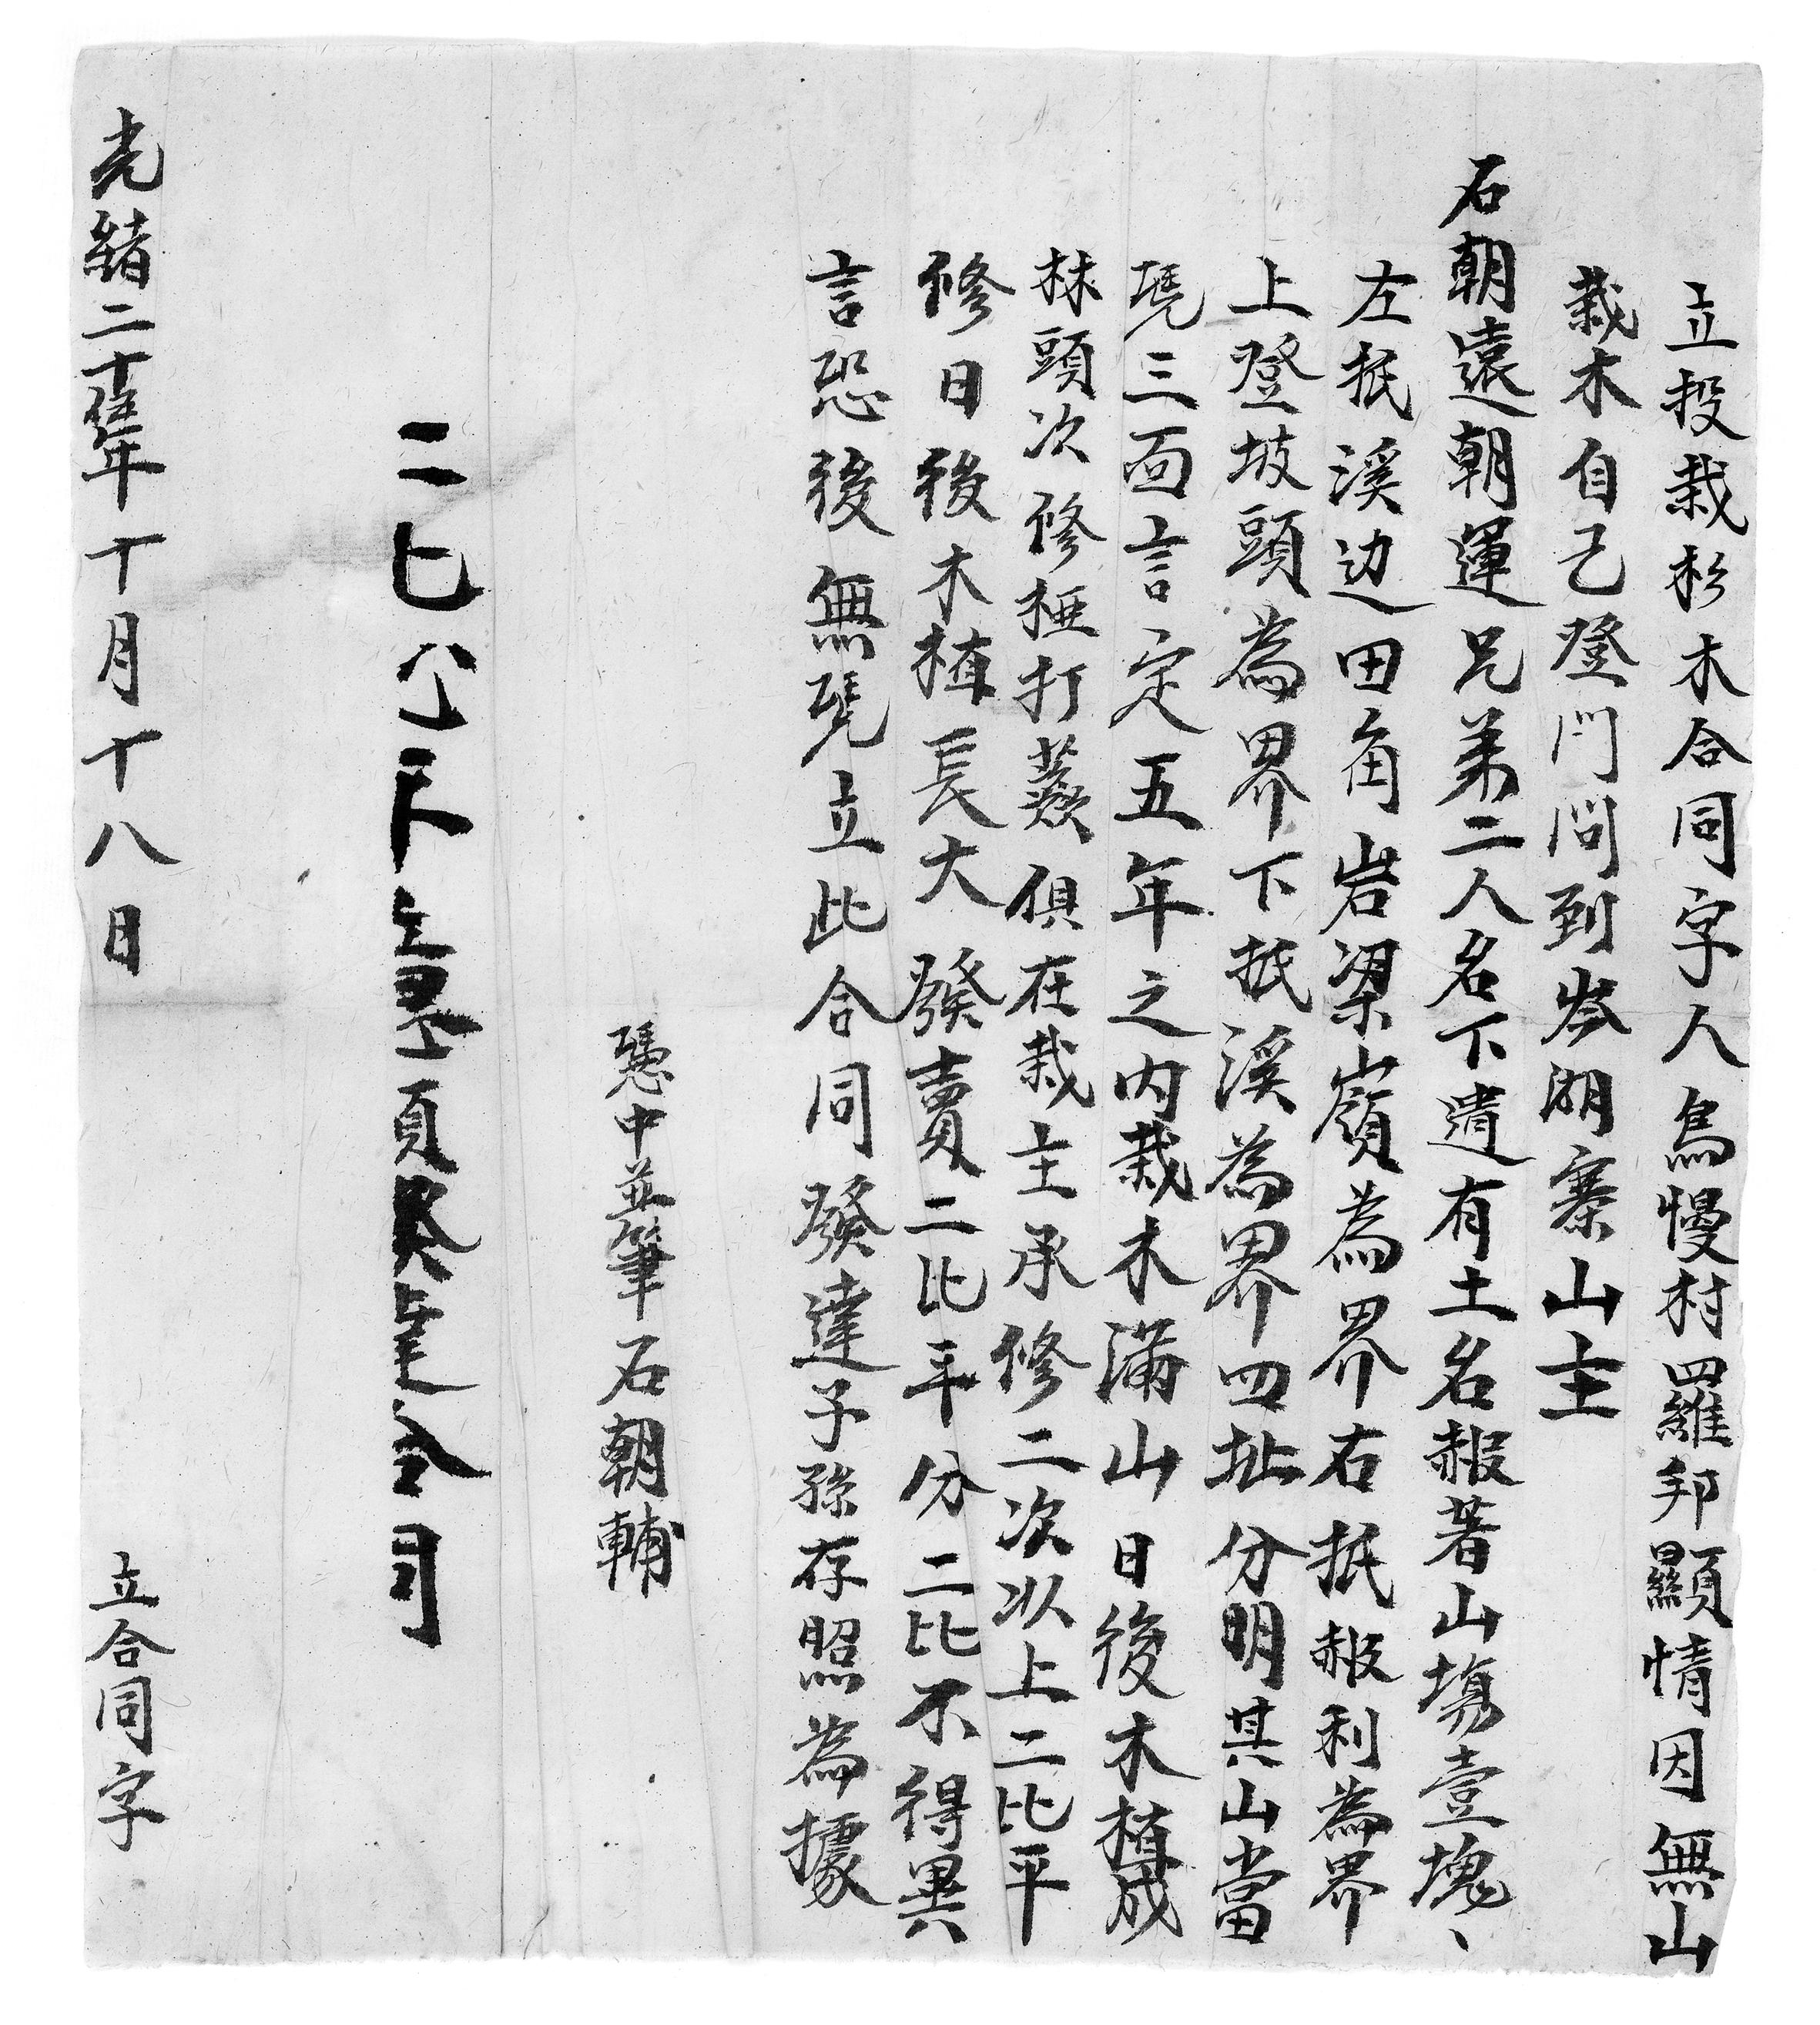 立投栽杉木合同字人烏慢村羅邦顯情因無山
栽木自己登門問到岑湖寨山主
石朝遠朝運兄弟二人名下遺有土名赧著山塲壹塊、
左抵溪边田角岩梁嶺為界右抵赧利為界
上登坡頭為界下抵溪為界四址分明其山當
凴三面言定五年之内栽木滿山日後木植成
林頭次修挜打蔸俱在栽主承修二次以上二比平
修日後木植長大發賣二比平分二比不得異
言恐後無凴立此合同發達子孫存照為據
憑中並筆石朝輔
光緒二十年十月十八日 立合同字